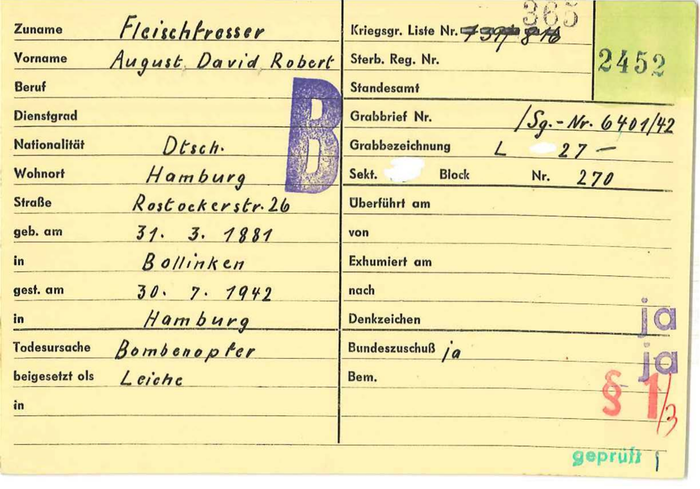 365
2452
Zuname Fleischfrosser
Vorname August, David Robert
Beruf
Dienstgrad
Nationalität Dtsch.
Wohnort Hamburg
Straße Rostockerstr. 26
geb. am 31. 3. 1881
in Bollinken
gest. am 30. 7. 1942
in Hamburg
Todesursache Bombenopfer
beigesetzt als Leiche
in
B
Kriegsgr. Liste Nr.
Sterb. Reg. Nr.
Standesamt
Grabbrief Nr. /Sg.-Nr. 6401/42
Grabbezeichnung L 27 —
Sekt. Block Nr. 270
Überführt am
von
Exhumiert am
nach
Denkzeichen ja
Bundeszuschuß ja ja
Bem. § 1/3
geprüft